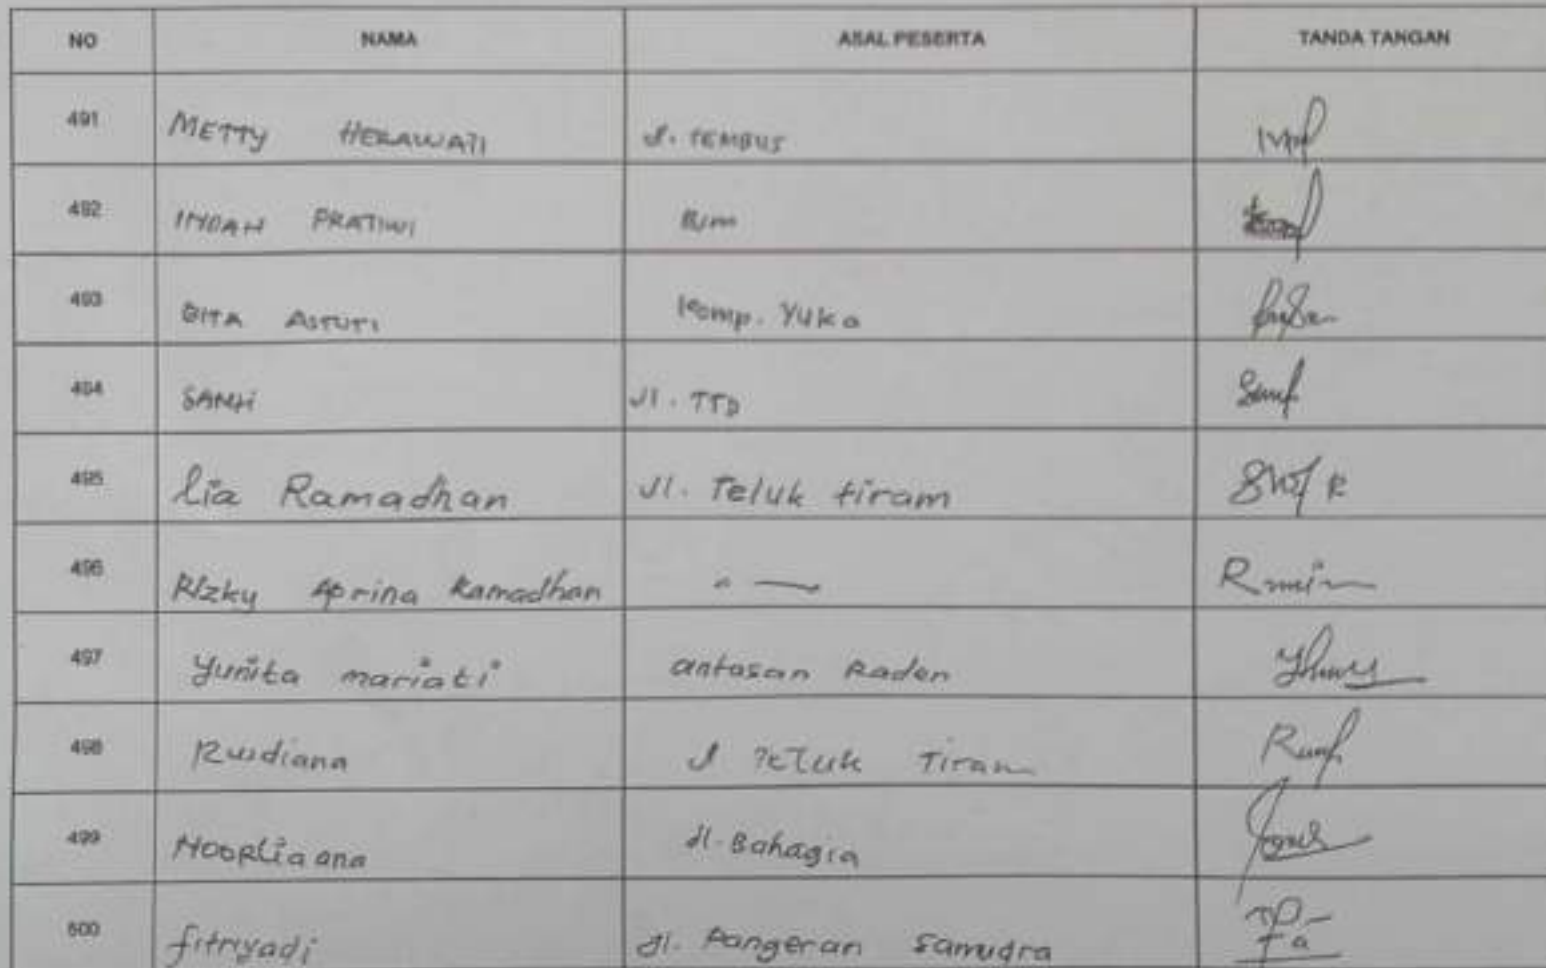 NO NAMA ASAL PESERTA TANDA TANGAN
491 METTY HERAWATI Jl. TEMBUS
492 INDAH PRATIWI BJM
493 GITA ASTUTI Komp. Yuka
494 SANTI Jl. TTD
495 Lia Ramadhan Jl. Teluk tiram
496 Rizky Aprina Ramadhan
497 Yunita mariati antasan Raden
498 Rusdiana Jl Teluk Tiram
499 Noorliaana Jl. Bahagia
500 fitriyadi Jl. Pangeran Samudra